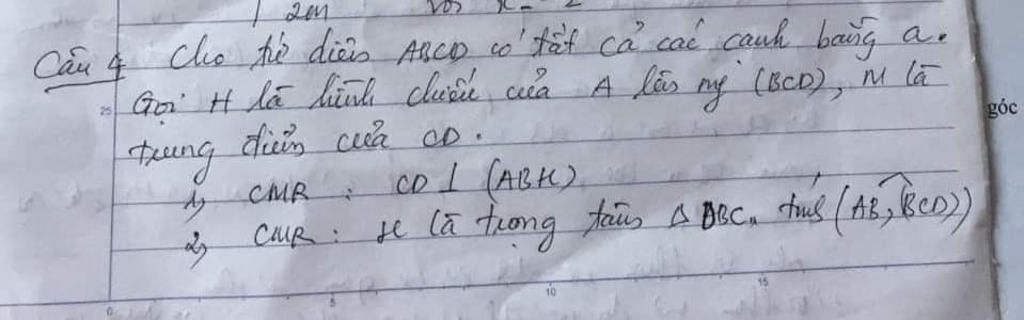 2m với x
Câu 4 Cho tứ diện ABCD có tất cả các cạnh bằng a.
Gọi H là hình chiếu của A lên mp (BCD), M là
góc
trung điểm của CD.
1, CMR : CD ⊥ (ABH)
2, CMR : H là trọng tâm Δ DBC. tính (AB, (BCD))
25
0 5 10 15